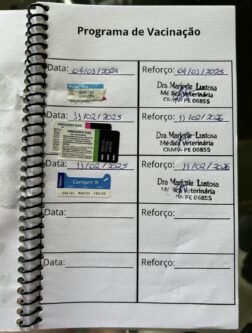 Programa de Vacinação
Data: 04/01/2025
Reforço: 04/01/2025
Dra Marjorie Lustosa
Médica Veterinária
CRMV PE 06855
Data: 11/02/2025
Reforço: 11/02/2026
Dra Marjorie Lustosa
Médica Veterinária
CRMV PE 06855
Data: 11/02/2025
Reforço: 11/02/2026
Canigen R
Dra Marjorie Lustosa
Médica Veterinária
PE 06855
Data:
Reforço:
Data:
Reforço: